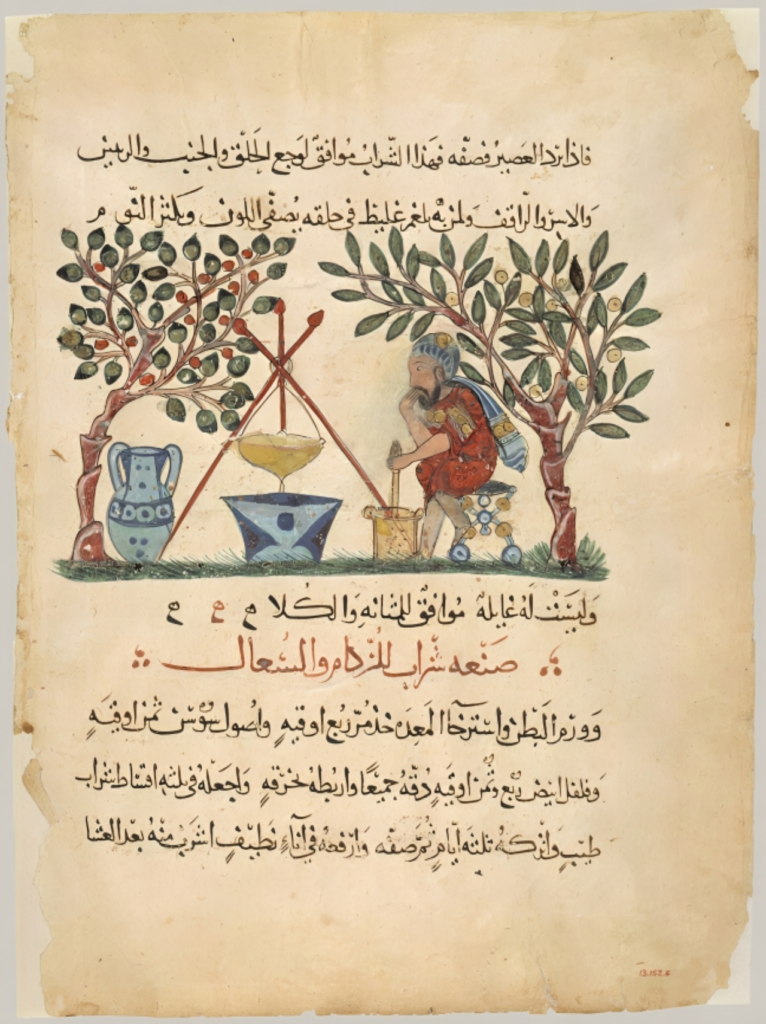 فاذا برد العصير فصفه فهذا الشراب موافق لوجع الحلق والجنب والريش
ولمن به بلغم غليظ في حلقه يصفي اللون ويكثر النوم
وليست له غايلة موافق للمثانه والكلا
صنعه شراب للزكام والسعال
وورم البطن واسترخا المعده خذ مر ربع اوقيه واصول سوسن ثمن اوقيه
وفلفل ابيض ربع وثمن اوقيه دقه جميعا واربطه بخرقه واجعله في ثلثه اقساط شراب
طيب واتركه ثلثه أيام ثم صفه وارفعه في اناء نظيف اشرب منه بعد العشا
13.152.6